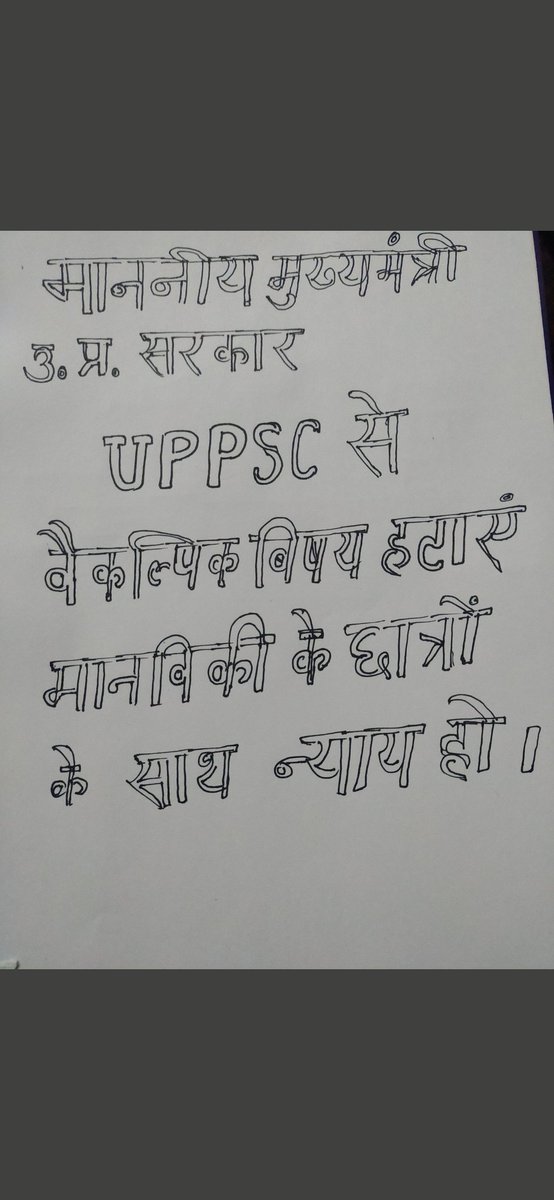 माननीय मुख्यमंत्री
उ. प्र. सरकार
UPPSC से
वैकल्पिक विषय हटाएं
मानविकी के छात्रों
के साथ न्याय हो।